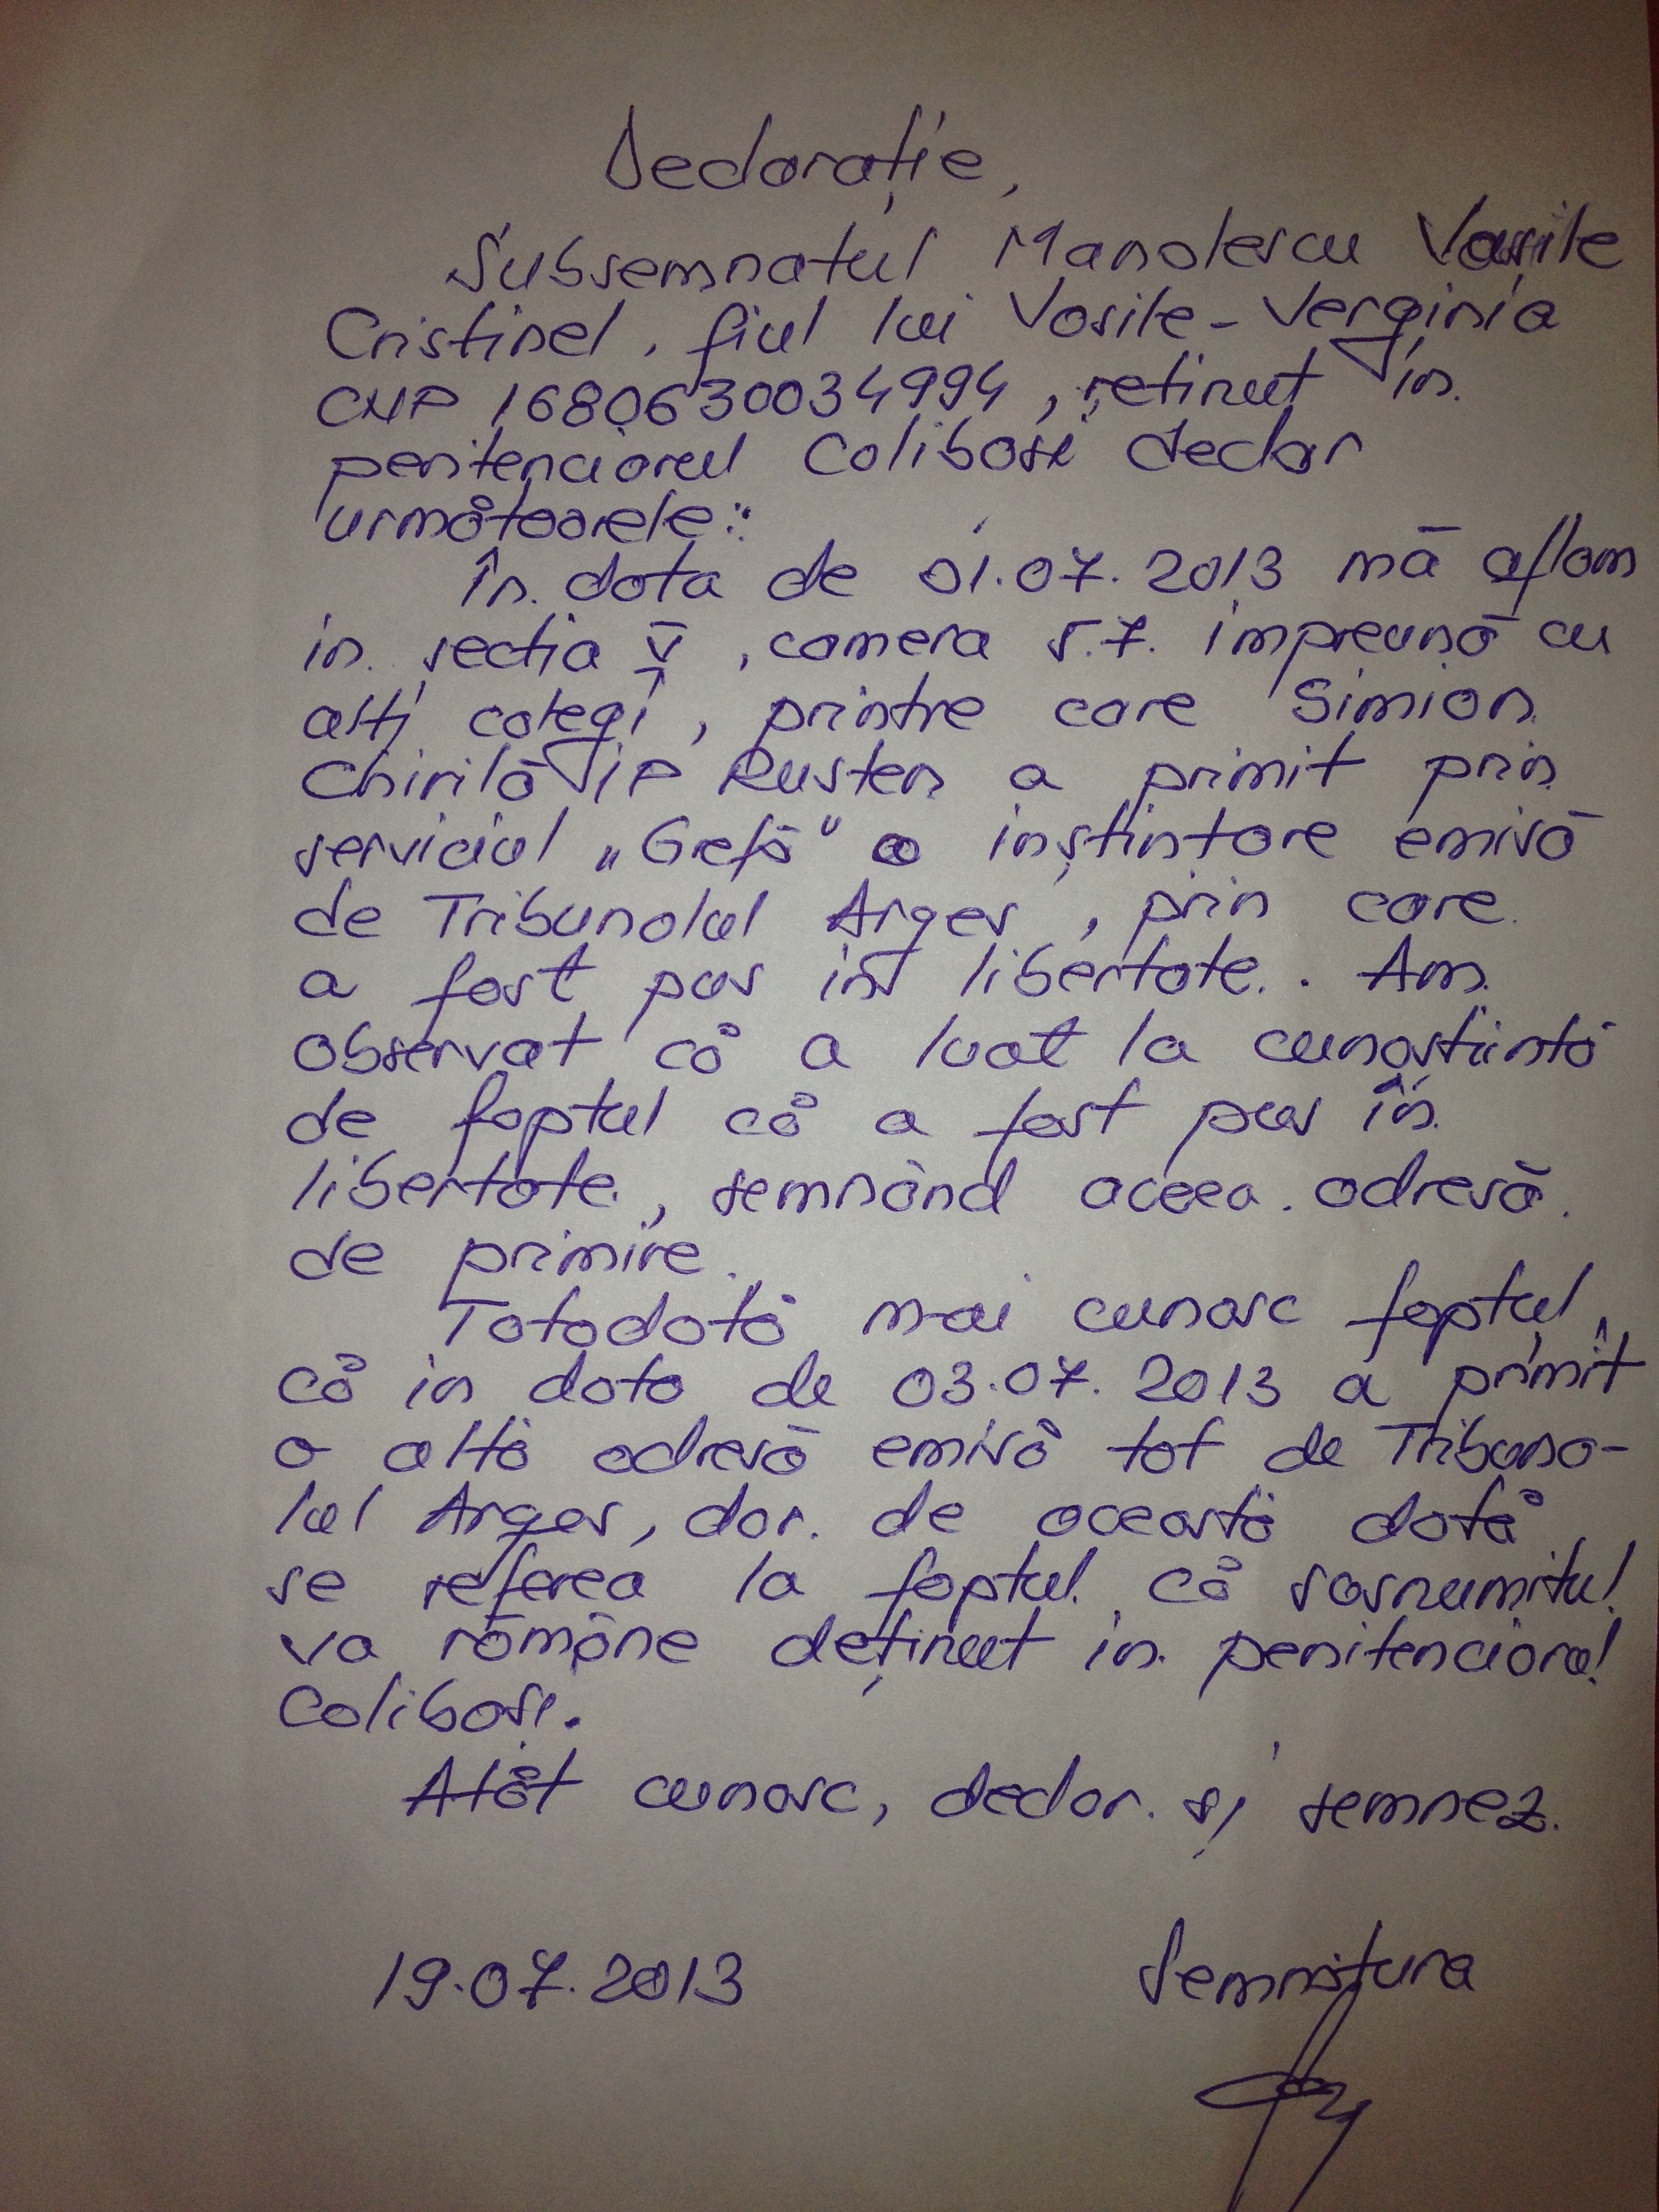 Declarație,
Subsemnatul Manolescu Vasile
Cristinel, fiul lui Vasile-Verginia
CNP 1680630034994, reținut în
penitenciarul Colibași declar
următoarele:
În data de 01.07.2013 mă aflam
in secția V, camera 5.7. împreună cu
alți colegi, printre care Simion
Chirilă IP Rusten a primit prin
serviciul „Grefă" o inștintare emisă
de Tribunalul Argeș, prin care
a fost pus in libertate. Am
observat că a luat la cunoștiintă
de faptul că a fost pus în
libertate, semnând aceea adresă
de primire.
Totodată mai cunosc faptul,
că in data de 03.07.2013 a primit
o altă adresă emisă tot de Tribuna-
lul Argeș, dar de această dată
se referea la faptul că susnumitul
va rămâne deținut in penitenciarul
Colibași.
Atât cunosc, declar și semnez.
19.07.2013 Semnătura